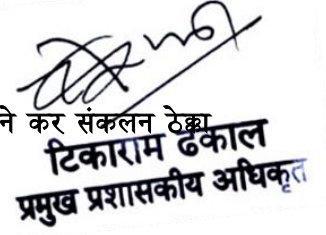 ने कर संकलन ठेक्का
टिकाराम ढकाल
प्रमुख प्रशासकीय अधिकृत